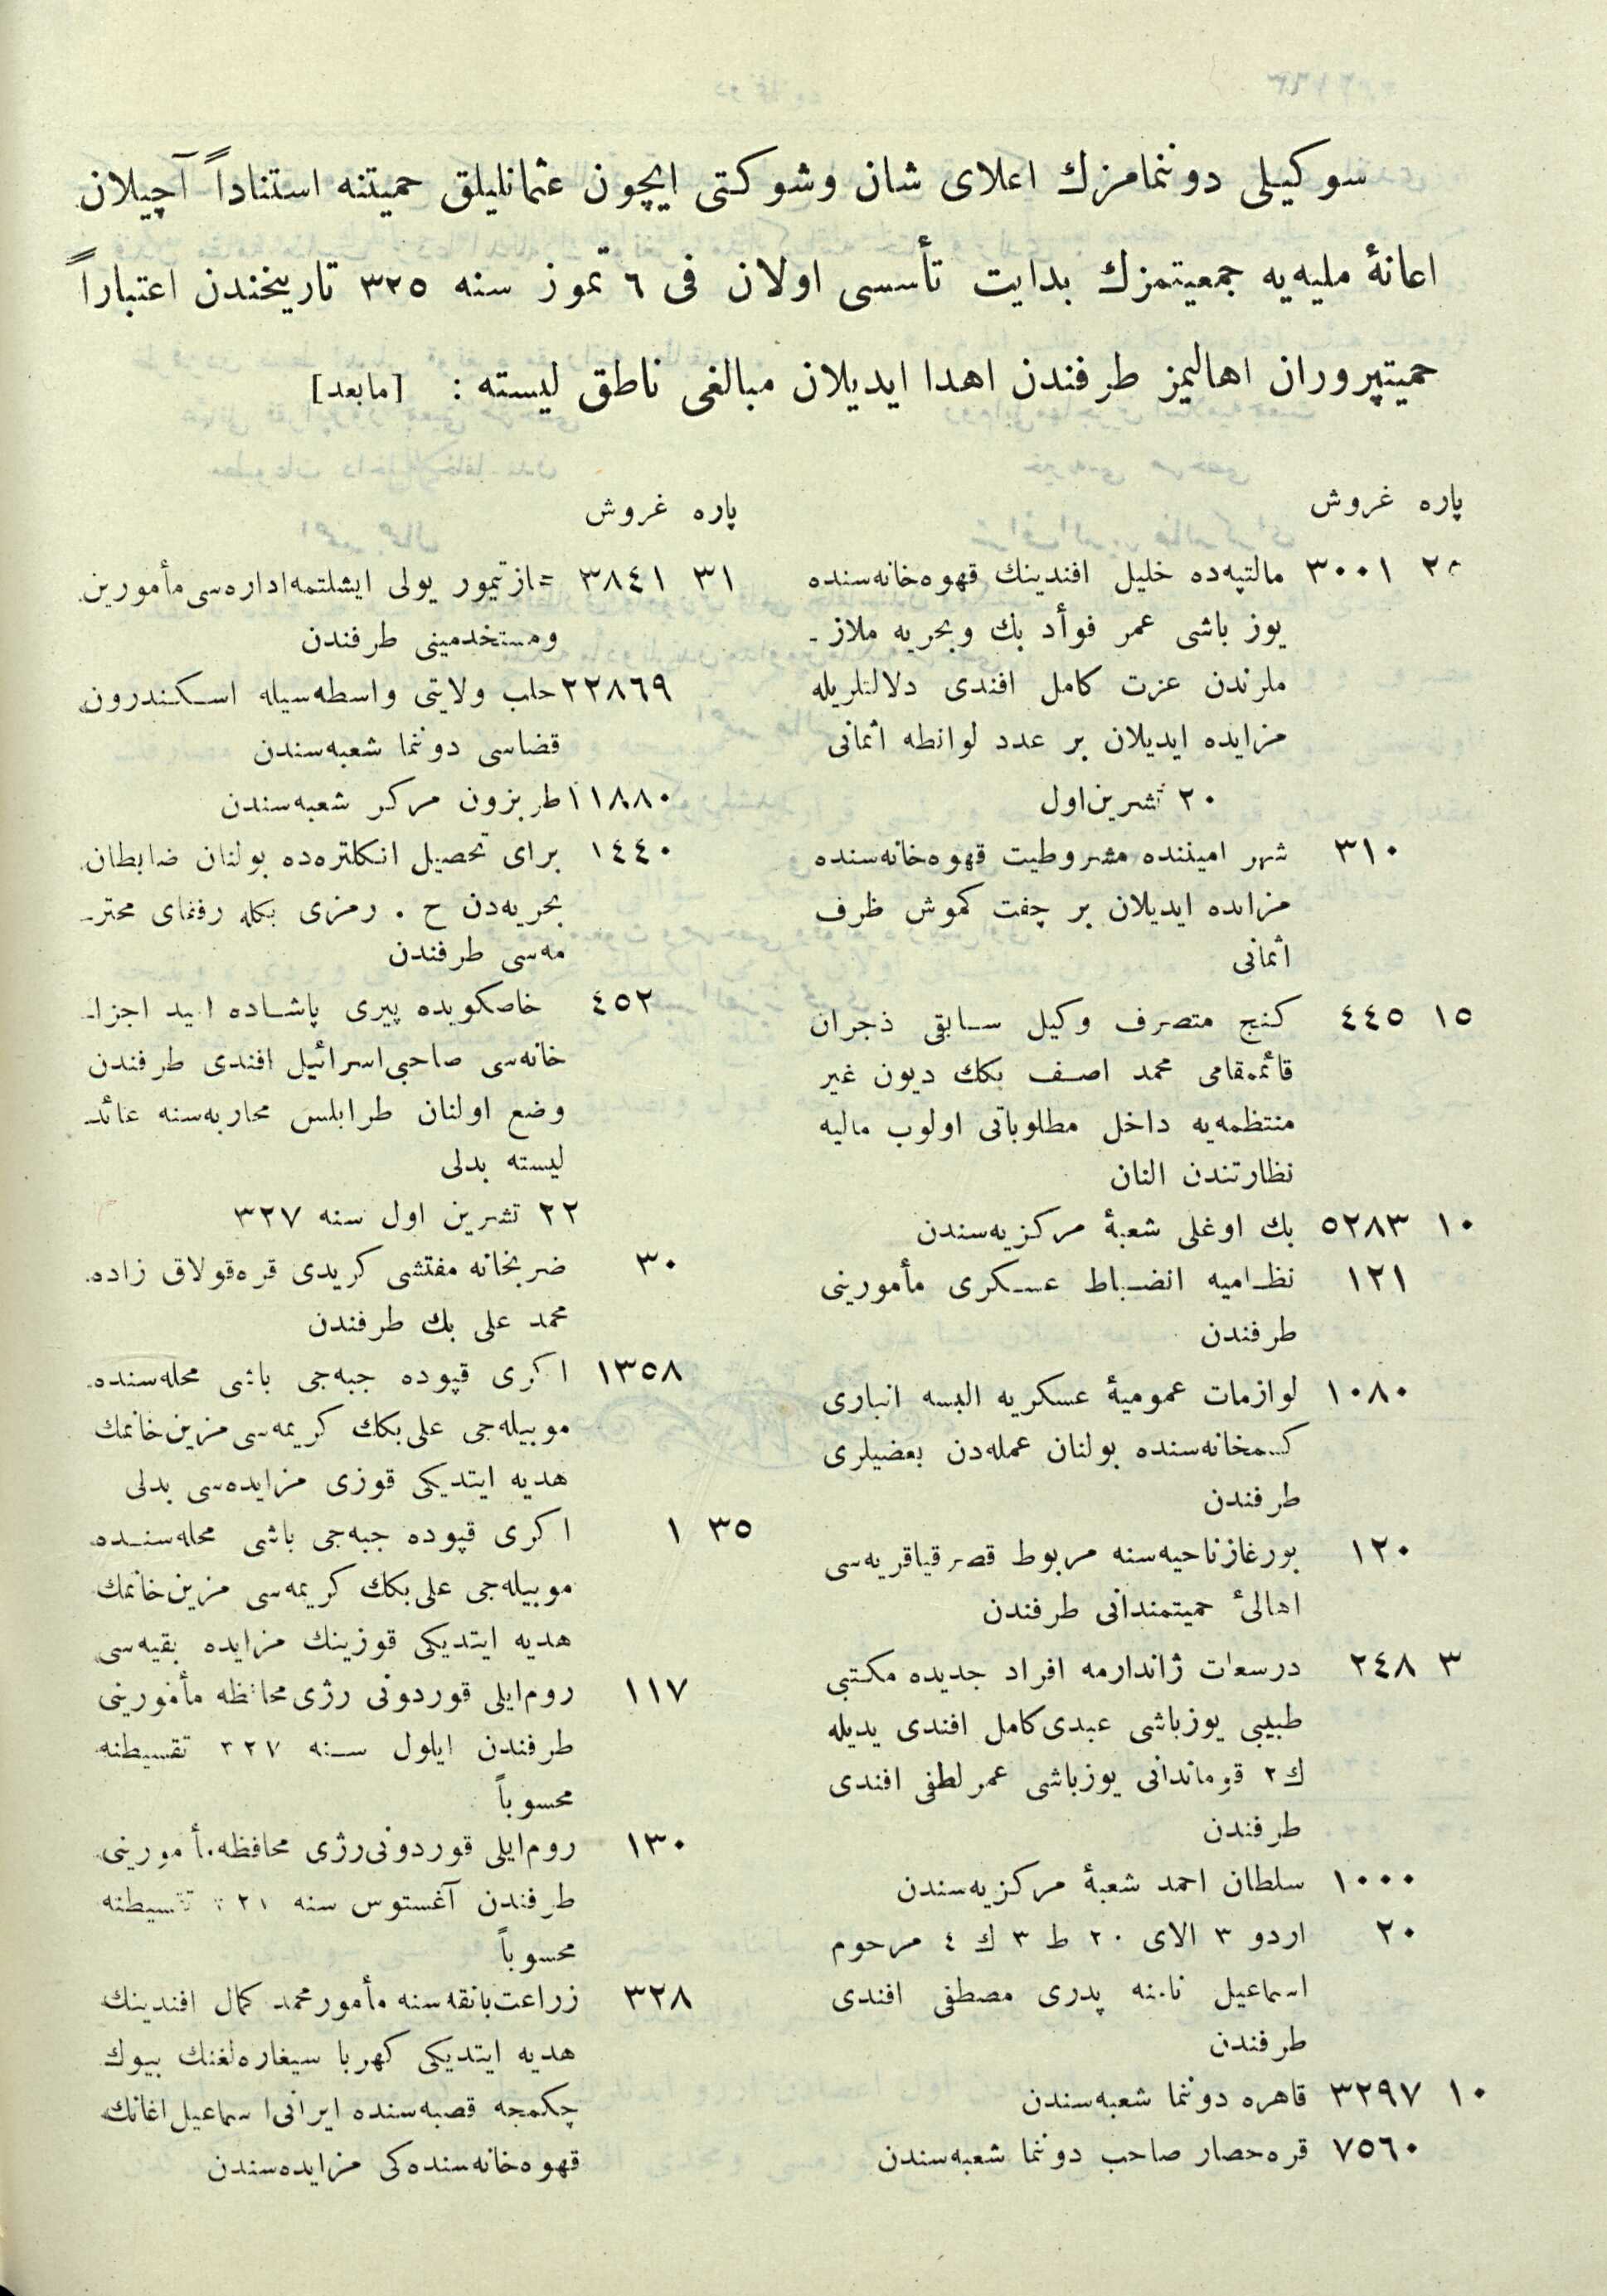 سوكيلى دوننمامزك اعلاى شان وشوكتى ايچون عثمانليلق حميتنه استناداً آچيلان
اعانهٔ مليه‌يه جمعيتمزك بدايت تأسسى اولان فى ٦ تموز سنه ٣٢٥ تاريخندن اعتباراً
حميتپروران اهاليمز طرفندن اهدا ايديلان مبالغى ناطق ليسته : [مابعد]
پاره غروش
٣٠٠١ مالتپه‌ده خليل افندينك قهوه‌خانه‌سنده
يوز باشى عمر فوأد بك وبحريه ملاز-
ملرندن عزت كامل افندى دلالتلريله
مزايده ايديلان بر عدد لوانطه اثمانى
٢٠ تشرين‌اول
٣١٠ شهر امیننده مشروطيت قهوه‌خانه‌سنده
مزايده ايديلان بر چفت كموش ظرف
اثمانى
١٥ ٤٤٥ كنج متصرف وكيل سابقى ذجران
قائممقامى محمد اصف بكك ديون غير
منتظمه‌يه داخل مطلوباتى اولوب ماليه
نظارتندن النان
١٠ ٥٢٨٣ بك اوغلى شعبهٔ مركزيه‌سندن
١٢١ نظاميه انضباط عسكرى مأمورينى
طرفندن
١٠٨٠ لوازمات عموميهٔ عسكريه البسه انبارى
كسمخانه‌سنده بولنان عمله‌دن بعضيلرى
طرفندن
١٢٠ بورغازناحيه‌سنه مربوط قصرقياقريه‌سى
اهالئ حميتمندانى طرفندن
٣ ٢٤٨ درسعات ژاندارمه افراد جديده مكتبى
طبيبى يوزباشى عبدى‌كامل افندى يديله
ك٢ قوماندانى يوزباشى عمر لطفى افندى
طرفندن
١٠٠٠ سلطان احمد شعبهٔ مركزيه‌سندن
٢٠ اردو ٣ الاى ٢٠ ط ٣ ك ٤ مرحوم
اسماعيل نامنه پدرى مصطفى افندى
طرفندن
١٠ ٣٢٩٧ قاهره دوننما شعبه‌سندن
٧٥٦٠ قره‌حصار صاحب دوننما شعبه‌سندن
پاره غروش
٣١ ٣٨٤١ تيمور يولى ايشلتمه‌اداره‌سى مأمورين
ومستخدمينى طرفندن
٢٢٨٦٩ حلب ولايتى واسطه‌سيله اسكندرون
قضاسى دوننما شعبه‌سندن
١١٨٨٠ طربزون مركز شعبه‌سندن
١٤٤٠ براى تحصيل انكلتره‌ده بولنان ضابطان
بحريه‌دن ح . رمزى بكله رفقاى محتر-
مه‌سى طرفندن
٤٥٢ خاصكويده پيرى پاشاده اجزا-
خانه‌سى صاحبى‌اسرائيل افندى طرفندن
وضع اولنان طرابلس محاربه‌سنه عائد
ليسته بدلى
٢٢ تشرين اول سنه ٣٢٧
٣٠ ضربخانه مفتشى كريدى قره‌قولاق زاده
محمد على بك طرفندن
١٣٥٨ اكرى قپوده جبه‌جى باشى محله‌سنده
موبيله‌جى على‌بكك كريمه‌سى مزين‌خانمك
هديه ايتديكى قوزى مزايده‌سى بدلى
٣٥ ١ اكرى قپوده جبه‌جى باشى محله‌سنده
موبيله‌جى على‌بكك كريمه‌سى مزين‌خانمك
هديه ايتديكى قوزينك مزايده بقيه‌سى
١١٧ روم‌ايلى قوردونى رژى‌محافظه مأمورينى
طرفندن ايلول سنه ٣٢٧ تقسيطنه
محسوباً
١٣٠ روم‌ايلى قوردونى‌رژى محافظه‌مأمورينى
طرفندن آغستوس سنه تقسيطنه
محسوباً
٣٢٨ زراعت‌بانقه‌سنه مأمورمحمد كمال افندينك
هديه ايتديكى كهربا سيغاره‌لغنك بيوك
چكمجه قصبه‌سنده ايرانى‌اسماعيل‌اغانك
قهوه‌خانه‌سنده‌كى مزايده‌سندن